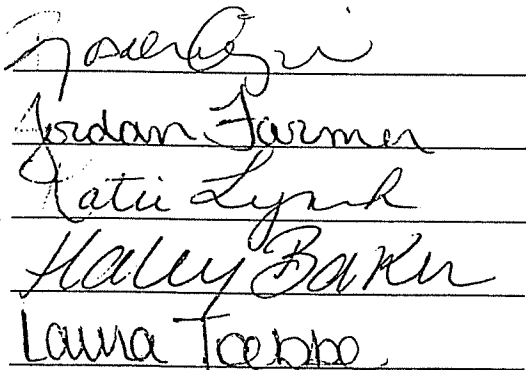 Jordan Farmer
Katie Lynch
Haley Baker
Laura Toebbe